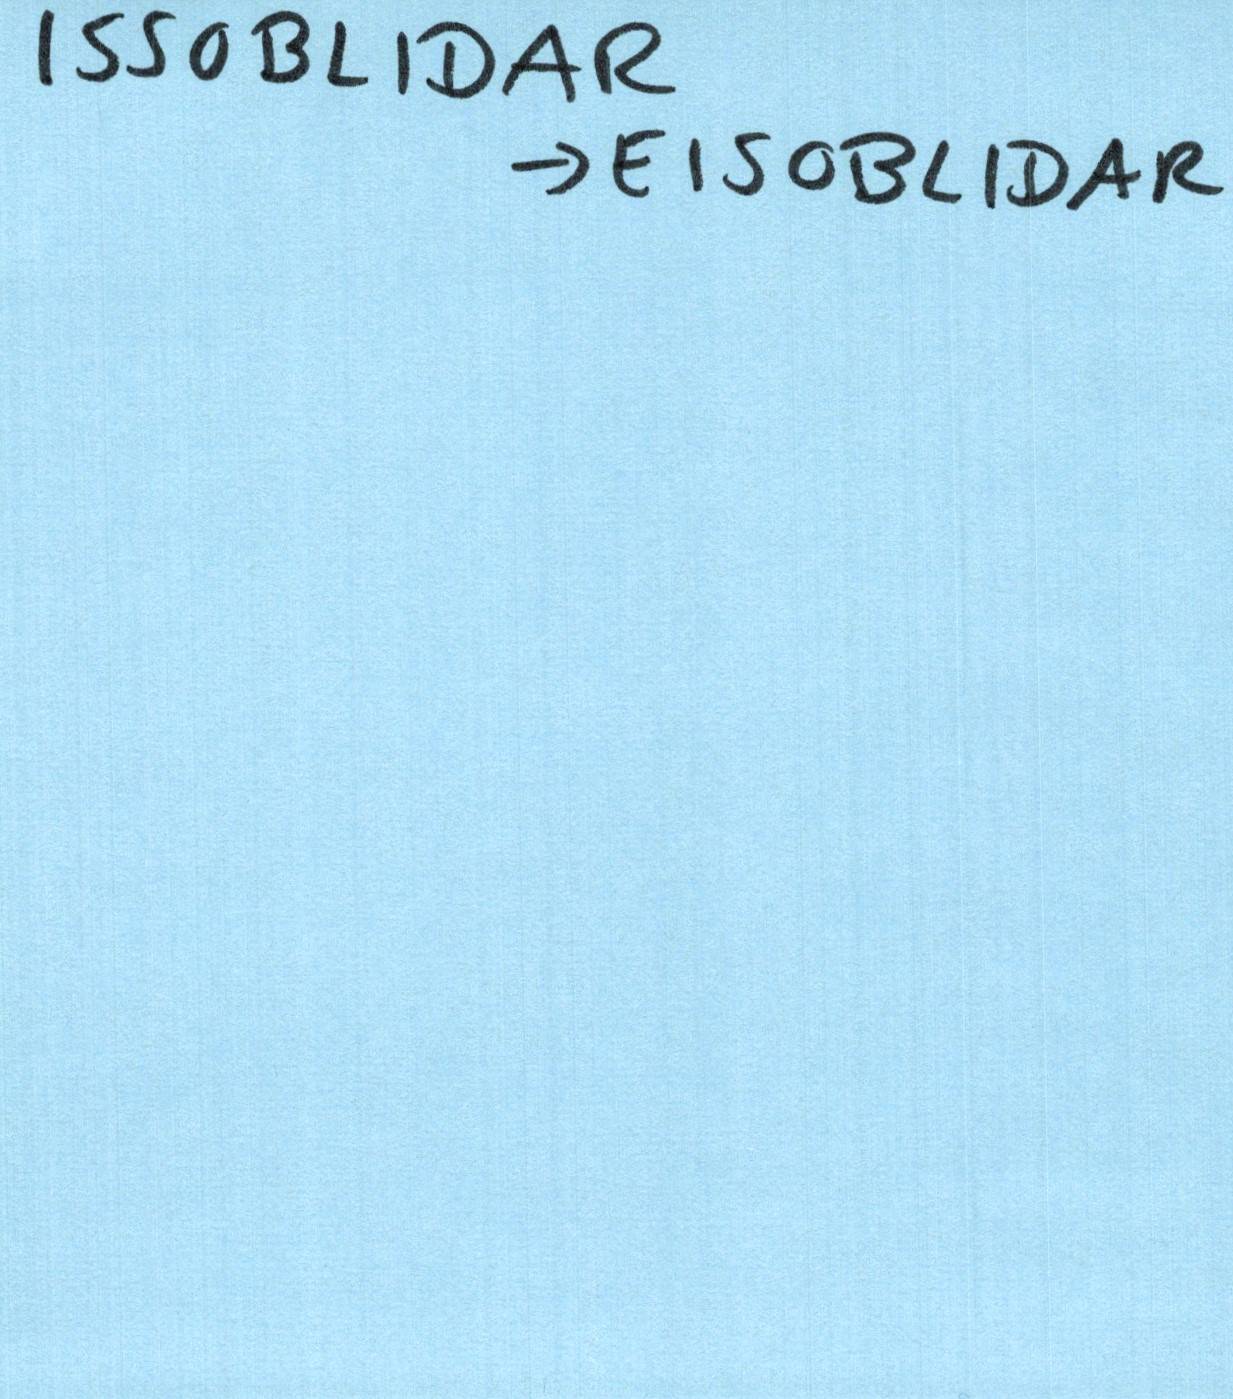 ISSOBLIDAR
→EISOBLIDAR